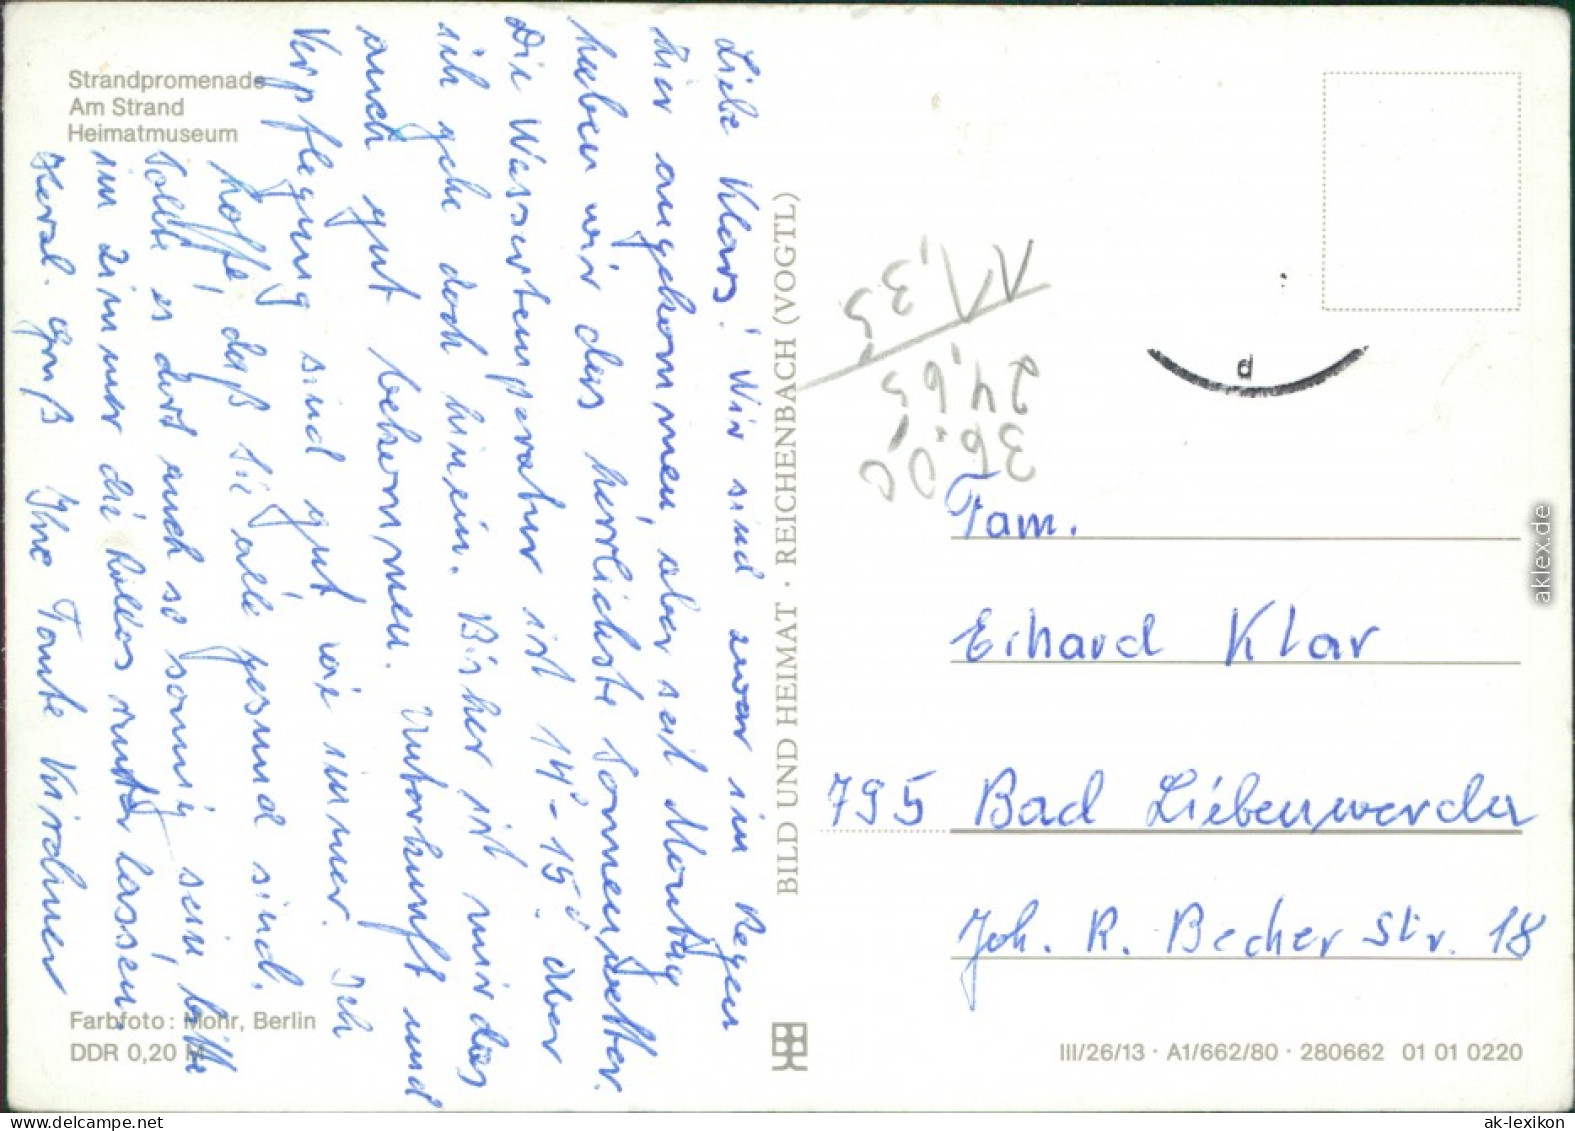 Strandpromenade
Am Strand
Heimatmuseum
Liebe Klars! Wir sind zwar im Regen
hier angekommen, aber seit Montag
haben wir das herrlichste Sonnenwetter.
Die Wassertemperatur ist 14°-15°. Aber
ich gehe doch hinein. Bisher ist mir das
auch gut bekommen. Unterkunft und
Verpflegung sind gut wie immer. Ich
hoffe, daß Sie alle gesund sind.
Sollte es dort auch so sonnig sein, bitte
im Zimmer die Rollos runter lassen.
Herzl. Gruß Ihre Tante Kirchner
Farbfoto: Mohr, Berlin
DDR 0,20 M
BILD UND HEIMAT · REICHENBACH (VOGTL)
36,00
24,65
11,35
d
Fam.
Erhard Klar
795 Bad Liebenwerda
Joh. R. Becher Str. 18
III/26/13 · A1/662/80 · 280662 01 01 0220
aklex.de
ak-lexikon